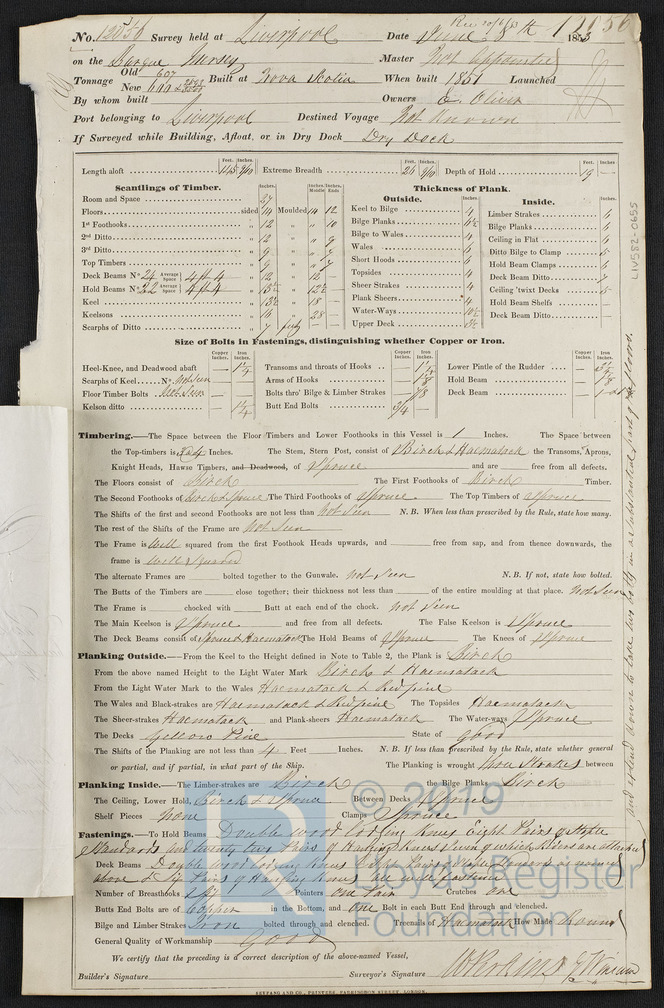 No. 12056 Survey held at Liverpool Date June 8th 1853
on the Barque Mersey Master Not Appointed
Tonnage Old 607 New Built at Nova Scotia When built 1851 Launched
By whom built Owners E. Oliver
Port belonging to Liverpool Destined Voyage Not Known
If Surveyed while Building, Afloat, or in Dry Dock Dry Dock
Feet. Inches. Feet. Inches. Feet. Inches
Length aloft 145 Extreme Breadth 26 Depth of Hold 19 —
Scantlings of Timber.
Room and Space 27
Floors sided 14 Moulded 14 12
1st Foothooks " 12 " 10
2nd Ditto " 12 " 9
3rd Ditto " 9 " 9
Top Timbers " 9 " 7
Deck Beams No. 24 Average Space 4 ft 4 " 12 12
Hold Beams No. 22 Average Space 4 ft 4 " 13½ 12½
Keel " 13½ 18
Keelsons " 16 28 —
Scarphs of Ditto 7 feet
Thickness of Plank.
Outside.
Keel to Bilge 4
Bilge Planks 4½
Bilge to Wales 4
Wales
Short Hoods 6
Topsides 4
Sheer Strakes 4
Plank Sheers 4
Water-Ways 10½
Upper Deck 3½
Inside.
Limber Strakes 6
Bilge Planks 6
Ceiling in Flat 6
Ditto Bilge to Clamp 5
Hold Beam Clamps 6
Deck Beam Ditto
Ceiling 'twixt Decks 5
Hold Beam Shelfs —
Deck Beam Ditto —
Size of Bolts in Fastenings, distinguishing whether Copper or Iron.
Copper Inches Iron Inches Copper Inches Iron Inches Copper Inches Iron Inches
Heel-Knee, and Deadwood abaft — 1¼
Scarphs of Keel No. Not Seen
Floor Timber Bolts Not Seen
Kelson ditto — 1¼
Transoms and throats of Hooks —
Arms of Hooks — 1⅛
Bolts thro' Bilge & Limber Strakes
Butt End Bolts ¾ —
Lower Pintle of the Rudder —
Hold Beam —
Deck Beam —
Timbering.—The Space between the Floor Timbers and Lower Foothooks in this Vessel is 1 Inches. The Space between
the Top-timbers is 3 to 4 Inches. The Stem, Stern Post, consist of Birch & Haematack the Transoms, Aprons,
Knight Heads, Hawse Timbers, and Deadwood, of Spruce and are free from all defects.
The Floors consist of Birch The First Foothooks of Birch Timber.
The Second Foothooks of Birch & Spruce The Third Foothooks of Spruce The Top Timbers of Spruce
The Shifts of the first and second Foothooks are not less than Not Seen N. B. When less than prescribed by the Rule, state how many.
The rest of the Shifts of the Frame are Not Seen
The Frame is Well squared from the first Foothook Heads upwards, and free from sap, and from thence downwards, the
frame is Well Squared
The alternate Frames are bolted together to the Gunwale. Not Seen N. B. If not, state how bolted.
The Butts of the Timbers are close together; their thickness not less than of the entire moulding at that place. Not Seen
The Frame is chocked with Butt at each end of the chock. Not Seen
The Main Keelson is Spruce and free from all defects. The False Keelson is Spruce
The Deck Beams consist of Spruce & Haematack The Hold Beams of Spruce The Knees of Spruce
Planking Outside.—From the Keel to the Height defined in Note to Table 2, the Plank is Birch
From the above named Height to the Light Water Mark Birch & Haematack
From the Light Water Mark to the Wales Haematack & Red pine
The Wales and Black-strakes are Haematack & Red pine The Topsides Haematack
The Sheer-strakes Haematack and Plank-sheers Haematack The Water-ways Spruce
The Decks Yellow Pine State of good
The Shifts of the Planking are not less than 4 Feet Inches. N. B. If less than prescribed by the Rule, state whether general
or partial, and if partial, in what part of the Ship. The Planking is wrought three Strakes between
Planking Inside.—The Limber-strakes are Birch the Bilge Planks Birch
The Ceiling, Lower Hold, Birch & Spruce Between Decks Spruce
Shelf Pieces none Clamps Spruce
Fastenings.—To Hold Beams Double wood Lodging Knees Eight Pairs of Staple
Standards and twenty two Pairs of Hanging Knees of which Riders are attached
Deck Beams Double wood Lodging Knees Eight Pairs Staple
above & Six Pairs of Hanging Knees all well fastened
Number of Breasthooks Pointers one Pair Crutches one
Butts End Bolts are of Copper in the Bottom, and One Bolt in each Butt End through and clenched.
Bilge and Limber Strakes Iron bolted through and clenched. Treenails of Haematack How Made Round
General Quality of Workmanship good
We certify that the preceding is a correct description of the above-named Vessel,
Builder's Signature Surveyor's Signature
SEYFANG AND CO., PRINTERS, FARRINGDON STREET, LONDON.
LIV582-0655
© 2019
Lloyd's Register
Foundation